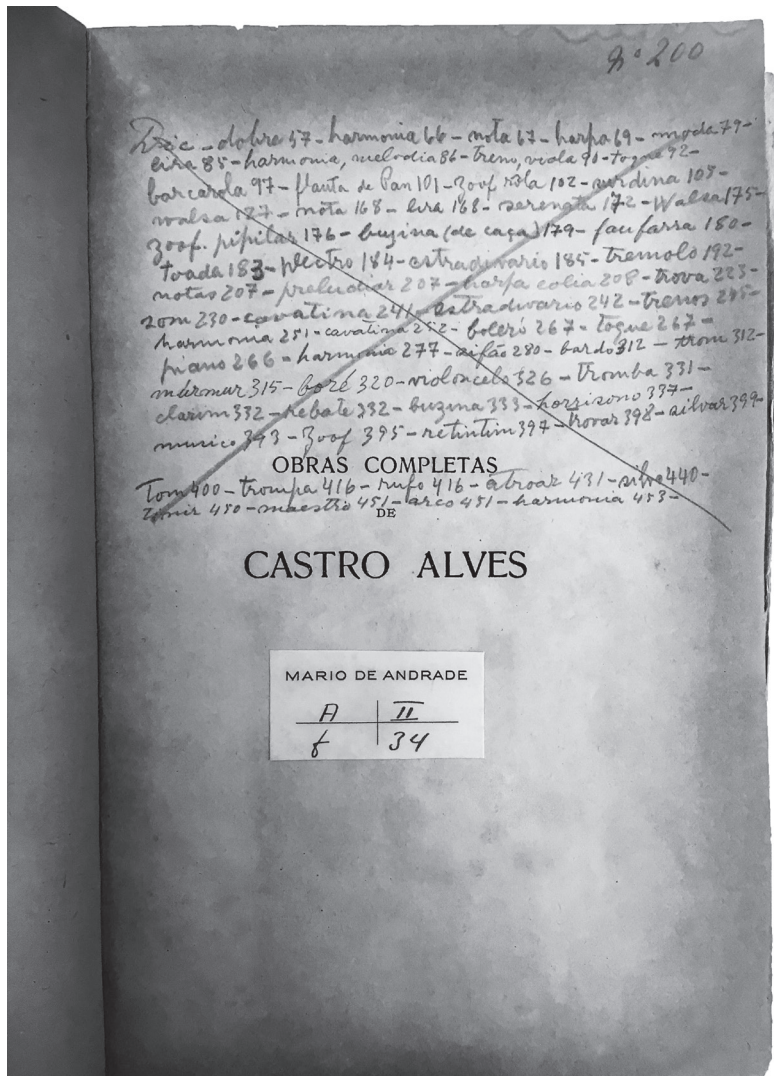 Nº 200
Dic - dobre 57 - harmonia 66 - nota 67 - harpa 69 - moda 79 -
lira 85 - harmonia, melodia 86 - treno, viola 90 - toque 92 -
barcarola 97 - flauta de Pan 101 - Zoof rola 102 - surdina 108 -
walsa 127 - nota 168 - lira 168 - serenata 172 - Walsa 175 -
zoof. pipilar 176 - buzina (de caça) 179 - fanfarra 180 -
toada 183 - plectro 184 - estradivario 185 - tremolo 192 -
notas 207 - preludiar 207 - harpa eolia 208 - trova 223 -
som 230 - cavatina 241 - estradivario 242 - trenos 245 -
harmonia 251 - cavatina 252 - bolero 267 - toque 267 -
piano 266 - harmonia 277 - aifão 280 - bardo 312 - trom 312 -
múrmur 315 - boré 320 - violoncelo 326 - tromba 331 -
clarim 332 - rebate 332 - buzina 333 - horrisono 337 -
musico 393 - Zoof 395 - retintim 397 - trovar 398 - silvar 399 -
OBRAS COMPLETAS
Tom 400 - trompa 416 - rufo 416 - atroar 431 - silvo 440 -
450 - maestro 451 - arco 451 - harmonia 453 -
DE
CASTRO ALVES
MARIO DE ANDRADE
A II
f 34